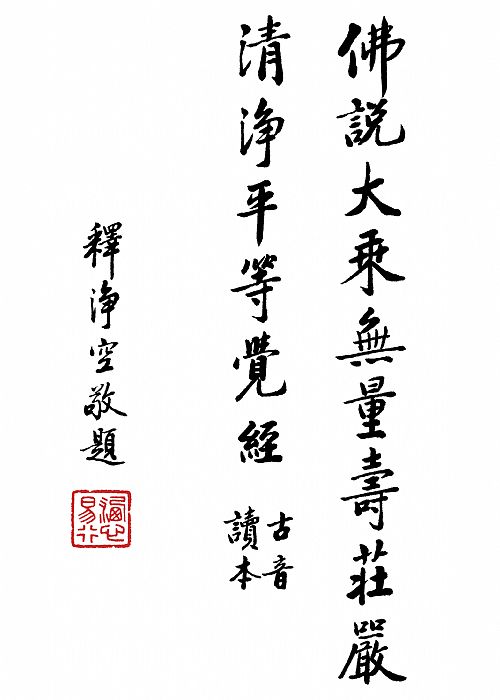 佛説大乘無量壽莊嚴
清淨平等覺經
古音
讀本
釋淨空敬題